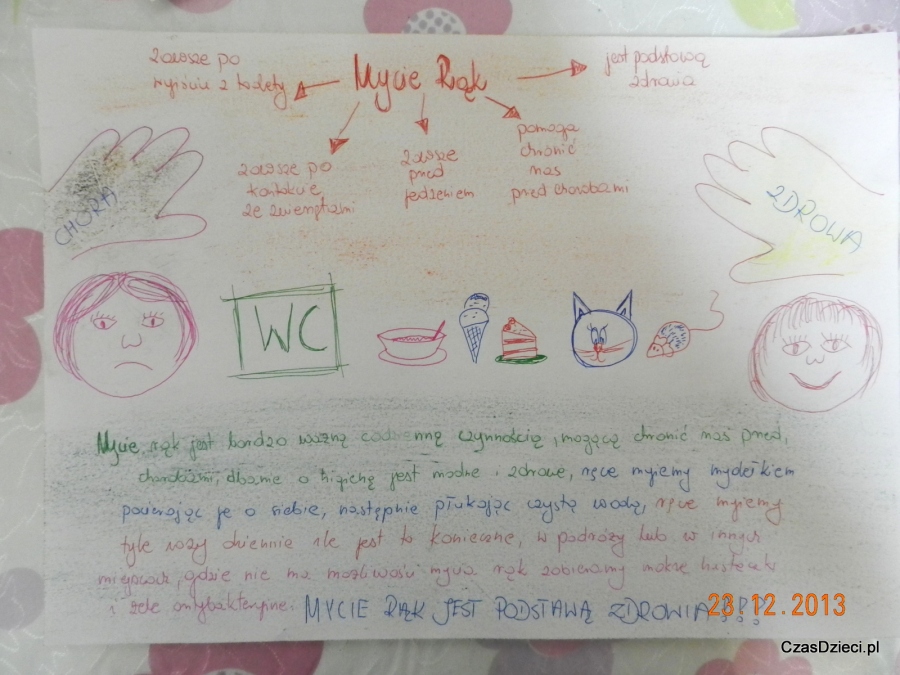 Mycie Rąk
zawsze po
wyjściu z toalety
jest podstawą
zdrowia
zawsze po
kontakcie
ze zwierzętami
zawsze
przed
jedzeniem
pomaga
chronić
nas
przed chorobami
CHORA
ZDROWA
WC
Mycie rąk jest bardzo ważną codzienną czynnością, mogącą chronić nas przed,
chorobami, dbanie o higienę jest modne i zdrowe, ręce myjemy mydełkiem
pocierając je o siebie, następnie płukając czystą wodą, ręce myjemy
tyle razy dziennie ile jest to konieczne, w podróży lub w innych
miejscach, gdzie nie ma możliwości mycia rąk zabieramy mokre husteczki
i żele antybakteryjne. MYCIE RĄK JEST PODSTAWĄ ZDROWIA!!!
23.12.2013
CzasDzieci.pl